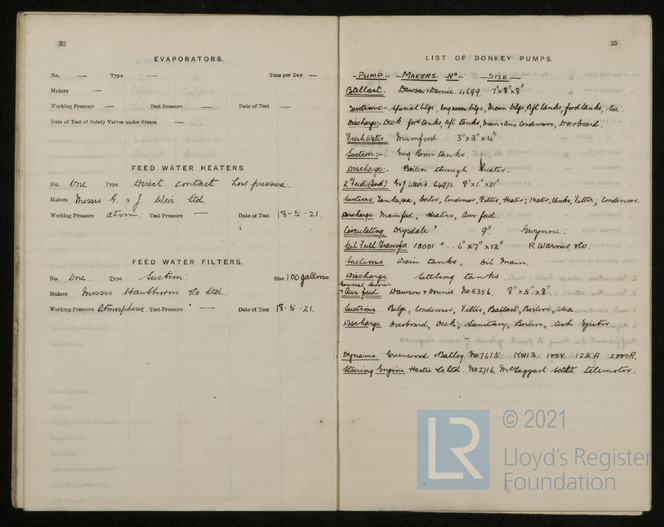 32
EVAPORATORS.
No. — Type — Tons per Day —
Makers —
Working Pressure — Test Pressure — Date of Test —
Date of Test of Safety Valves under Steam —
FEED WATER HEATERS.
No. One Type Direct contact Low pressure.
Makers Messrs G & J Weir Ltd
Working Pressure atiom Test Pressure — Date of Test 18-5-21.
FEED WATER FILTERS.
No. One. Type Suction. Size 100 gallons.
Makers Messrs Hawthorn & Co Ltd
Working Pressure Atmospheric Test Pressure — Date of Test 18-5-21.
33
LIST OF DONKEY PUMPS.
- PUMP - - MAKERS No - - SIZE -
Ballast. Dawson & Downie 11699 7"x8"x8"
Suctions - Special bilge, Eng room bilge, Main bilge, Aft tanks, ford tanks, Sea
Discharge - Deck, for tanks, Aft tanks, Main & Aux Condensers, Overboard.
Fresh Water Mumford 3"x3"x4"
Suction:- Eng Room tanks.
Discharge - Boiler through Heater.
2 Feed G & J Weirs 9"x6"x21"
Suctions Tanks, sea, boiler, Condenser, Filter, Heater;
Discharge Main feed, Heaters, Aux feed.
Circulating Drysdale 9" Gwynne.
Oil Fuel Transfer 10001 6"x7"x12" R Warner & Co.
Suctions Main tanks, Oil Main.
Discharge Settling tanks
Aux feed Dawson & Downie No 6356 8"x5"x8"
Suctions Bilge, Condenser, Filter, Ballast, Boilers, Sea
Discharge Overboard, Deck, Sanitary, Boilers, Ash Ejector.
Dynamo. Greenwood & Batley No 7615 100V. 125A 200 R.
Steering Engine Hastie Co Ltd. No 2716 McTaggart Scott telemotor.
LR
© 2021
Lloyd's Register
Foundation